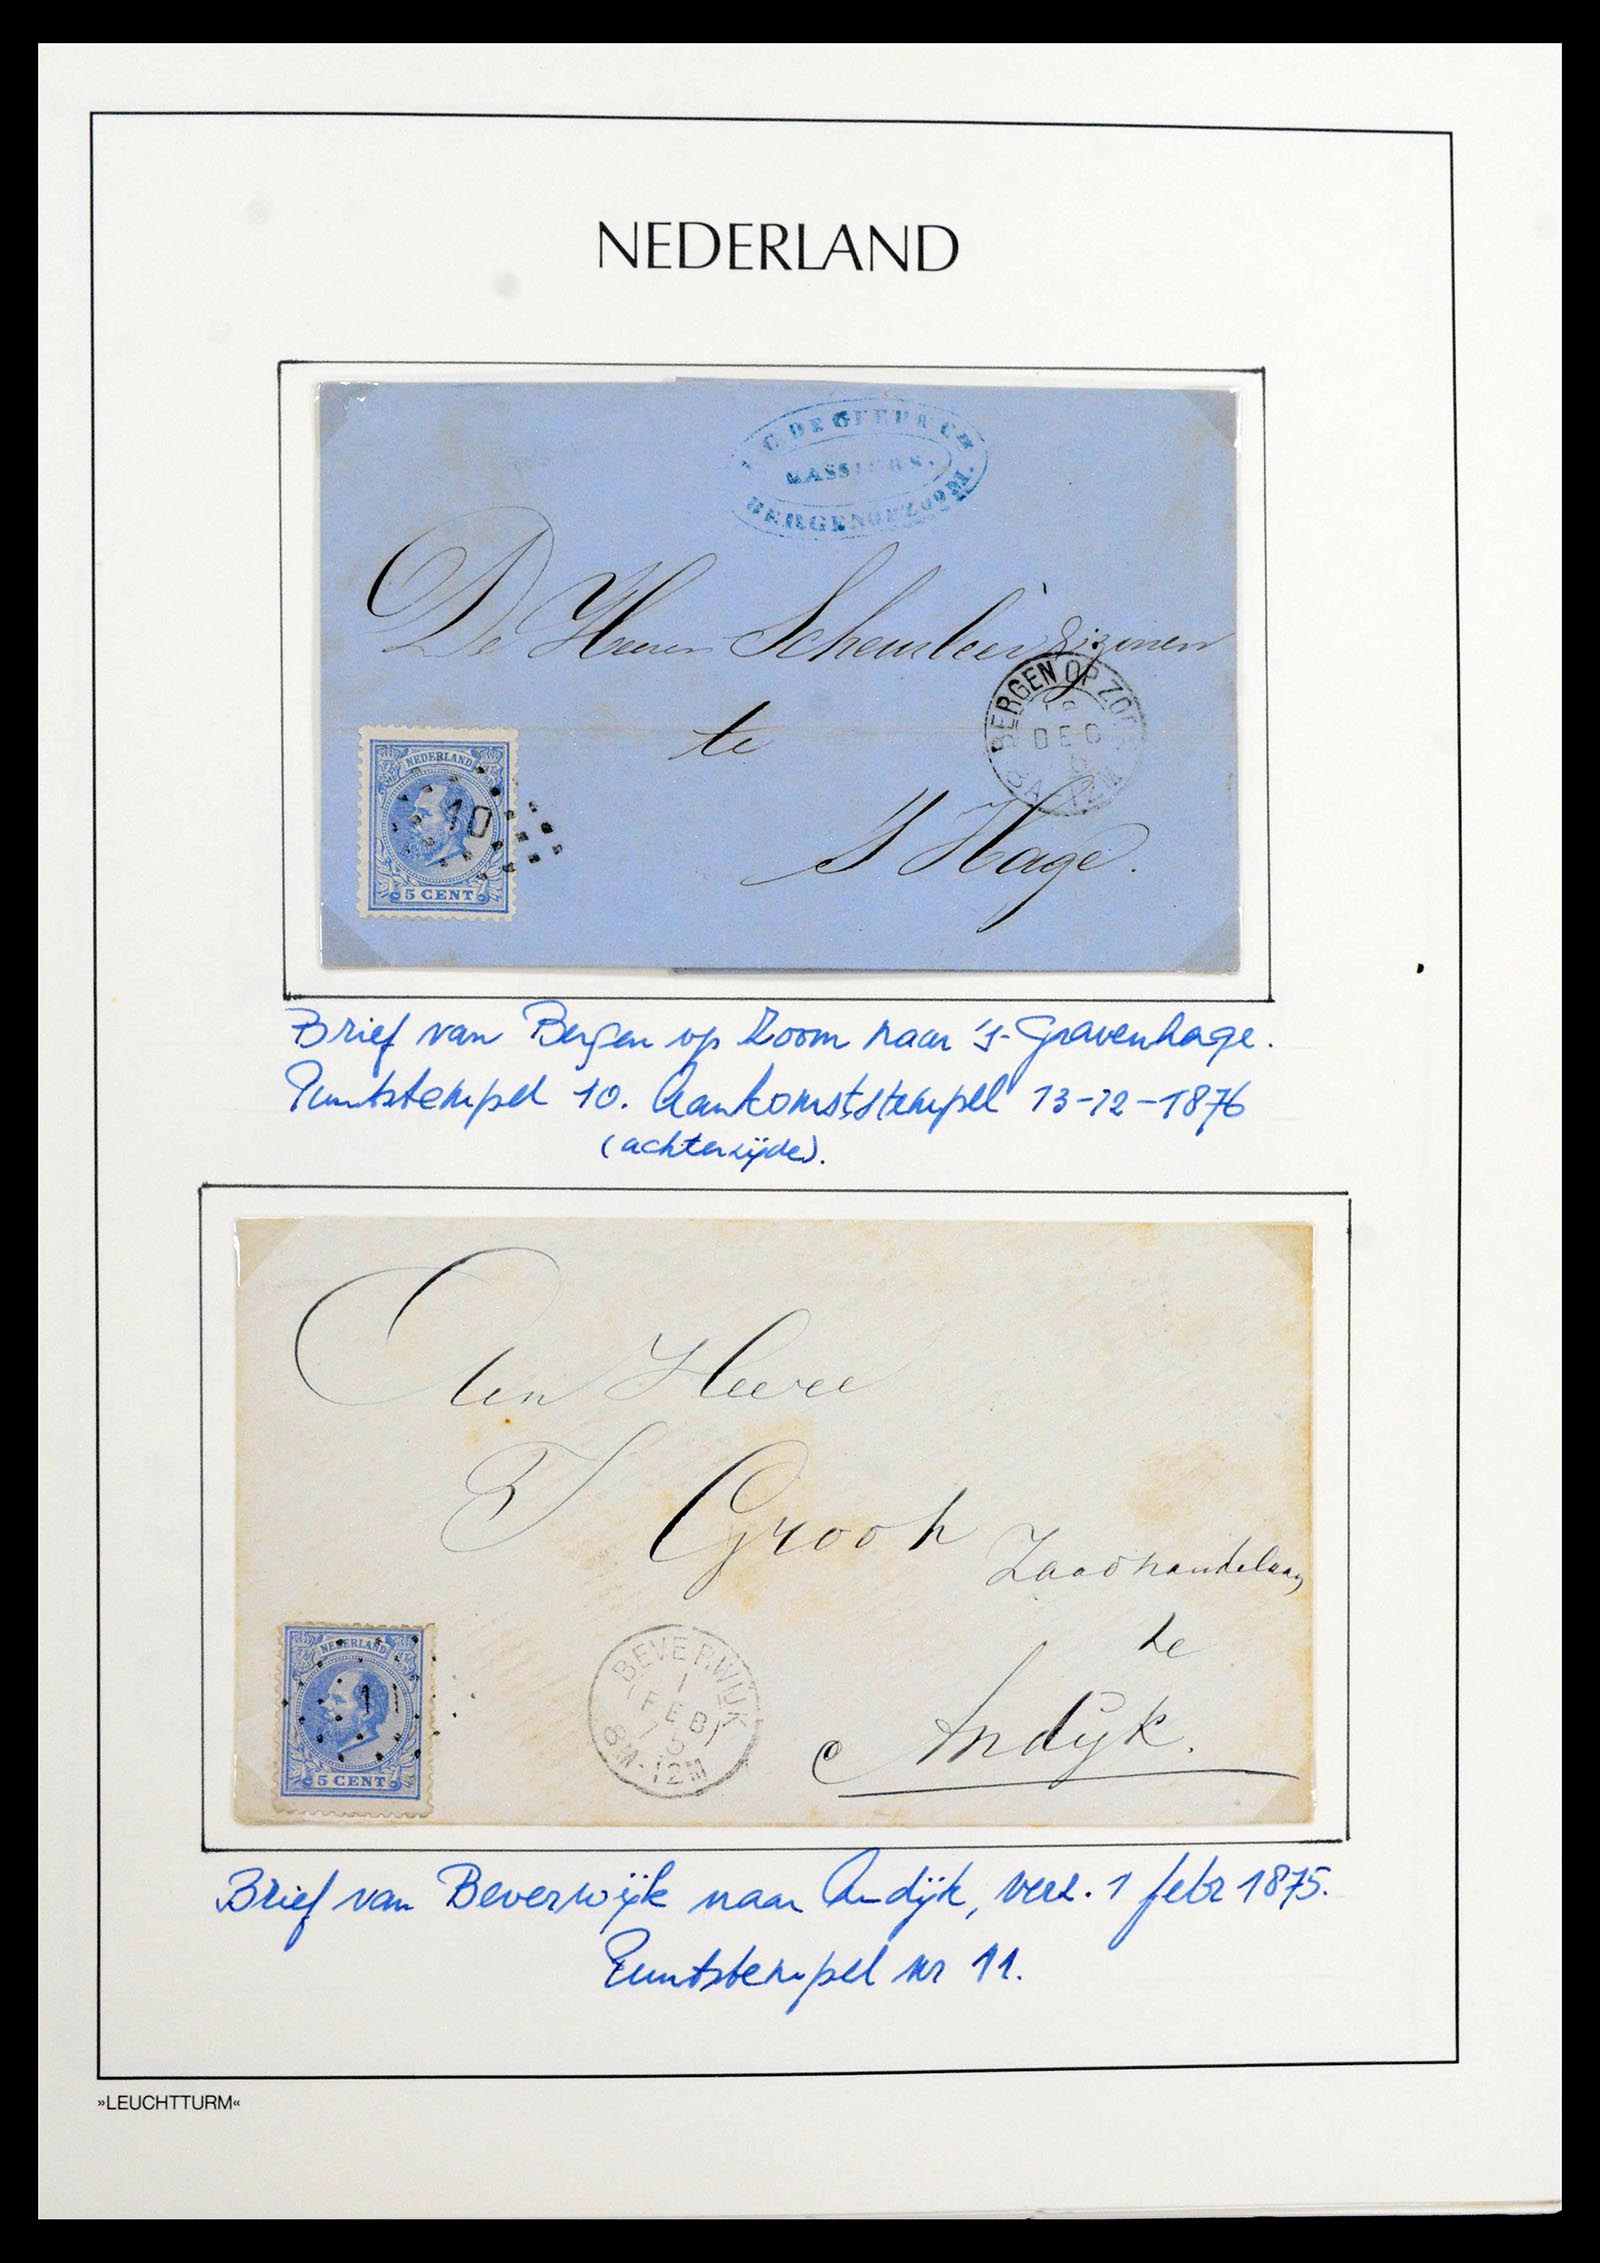 NEDERLAND
DE GEEBRS
KASSIERS.
BERGENOPZOOM.
De Heeren Scheurleer & Zoonen
BERGEN OP ZOOM
DEC
te
NEDERLAND
10
5 CENT
S Hage.
Brief van Bergen op Zoom naar 's-Gravenhage.
Puntstempel 10. Aankomststempel 13-12-1876
(achterzijde).
Aan Heere
Groot Zaadhandelaar
te
NEDERLAND
11
5 CENT
BEVERWIJK
1
FEB
75
8M-12M
Andijk.
Brief van Beverwijk naar Andijk, verz. 1 febr 1875.
Puntstempel nr 11.
»LEUCHTTURM«